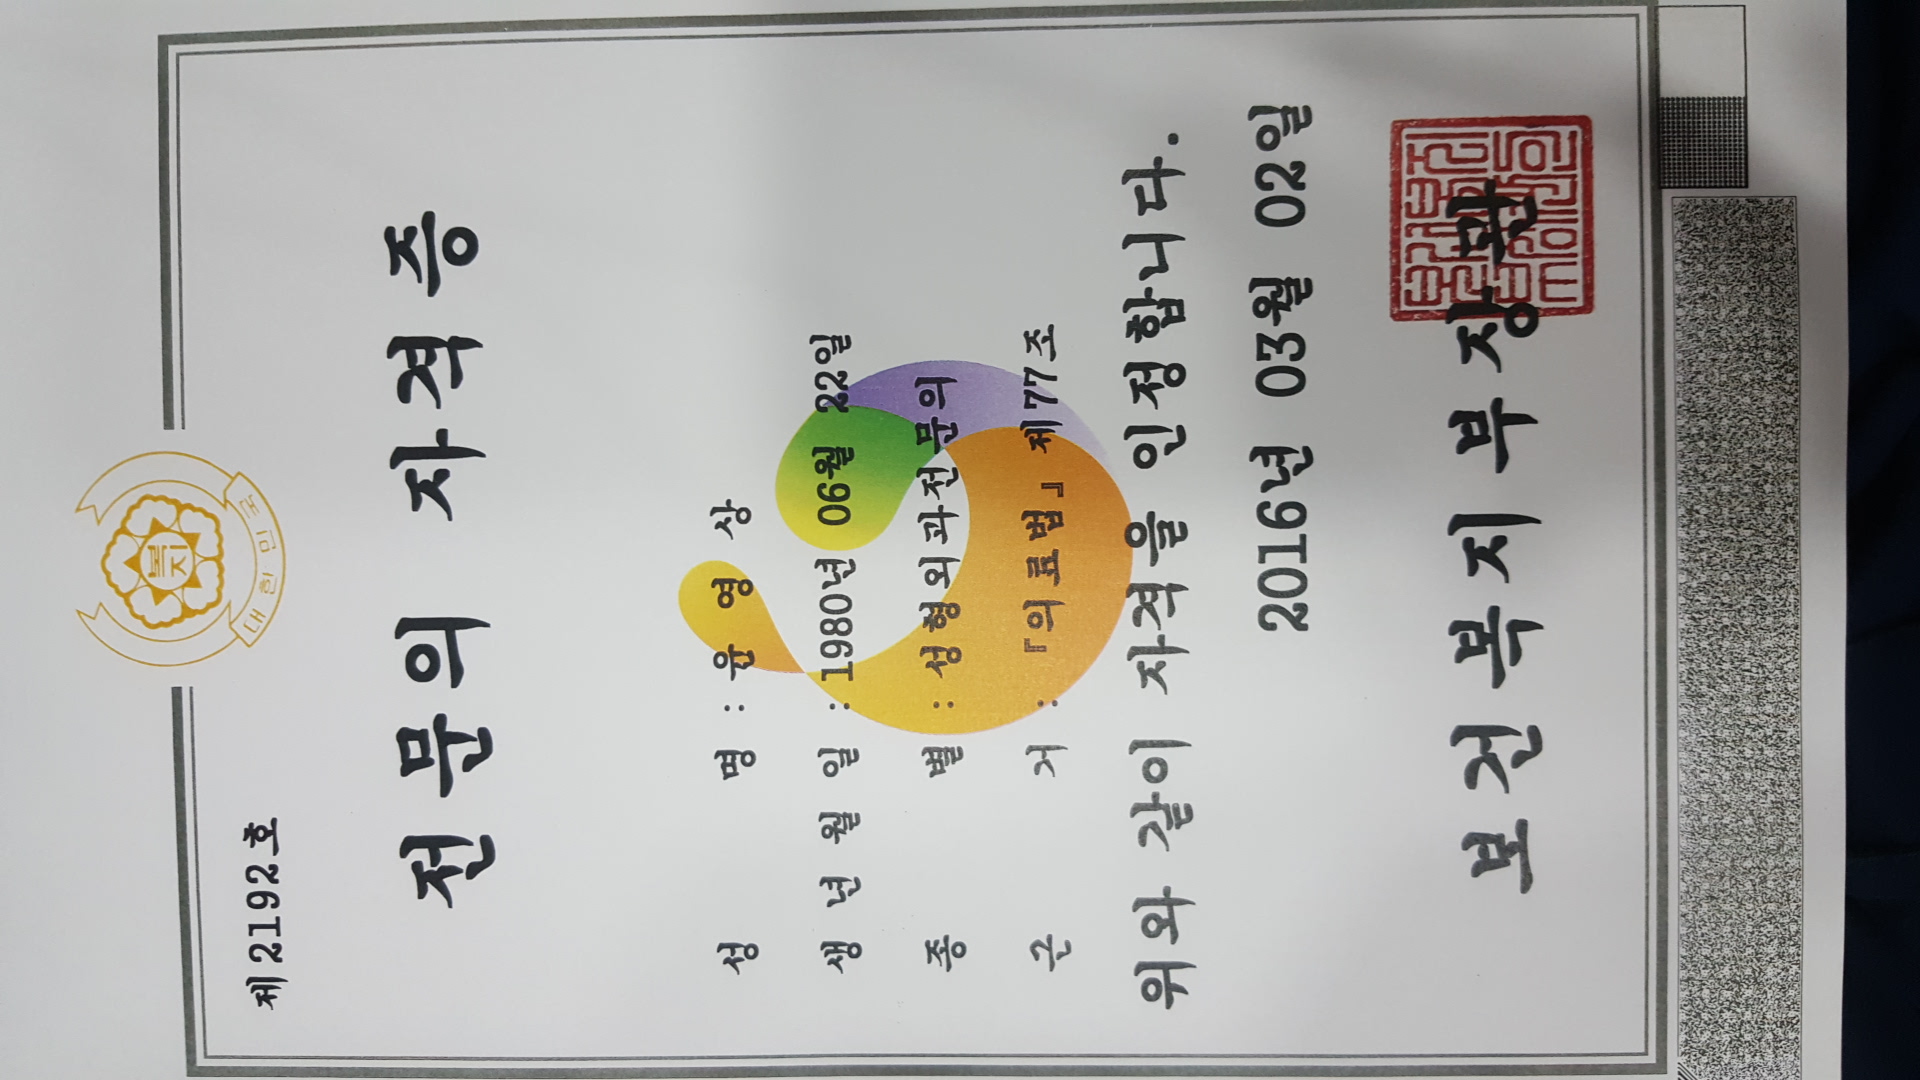 대한민국
복지
제2192호
전문의 자격증
성 명 : 윤 영 상
생 년 월 일 : 1980년 06월 22일
종 별 : 성형외과전문의
근 거 : 『의료법』 제77조
위와 같이 자격을 인정합니다.
2016년 03월 02일
보건복지부장관
보건복지부장관인